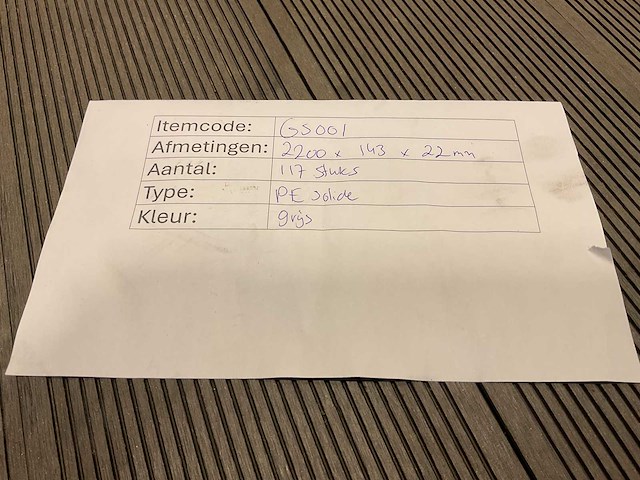 Itemcode: GS001
Afmetingen: 2200 x 143 x 22mm
Aantal: 117 stuks
Type: PE solide
Kleur: grijs